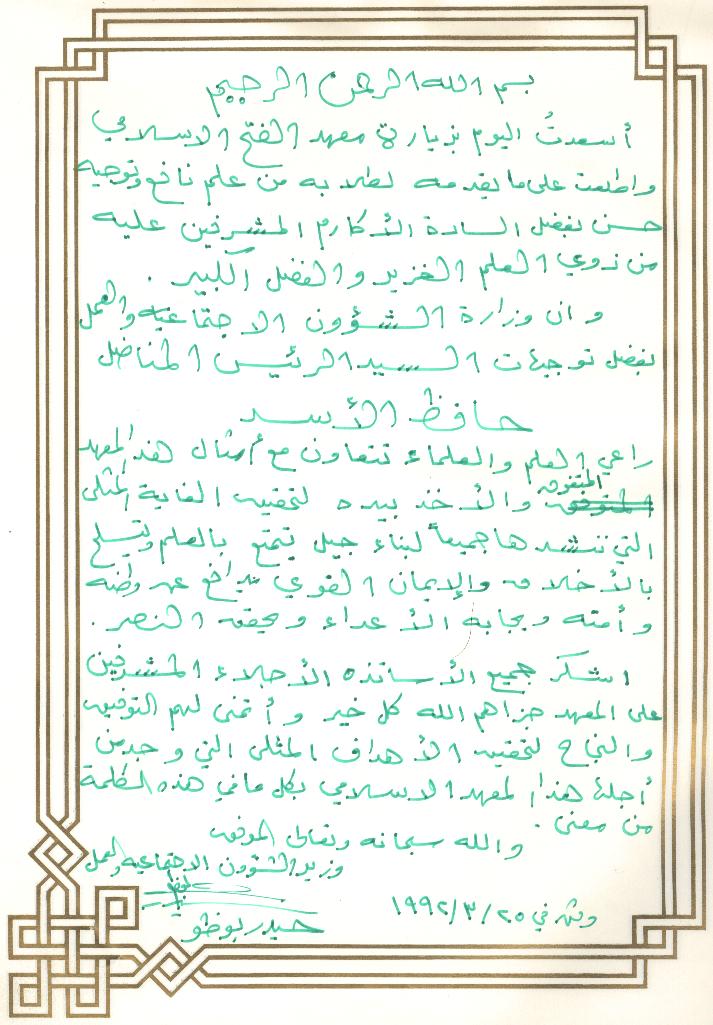 بسم الله الرحمن الرحيم
أسعدتُ اليوم بزيارة معهد الفتح الاسلامي
واطلعت على ما يقدمه لطلابه من علم نافع وتوجيه
حسن بفضل السادة الأكارم المشرفين عليه
من ذوي العلم الغزير والفضل الكبير .
وان وزارة الشؤون الاجتماعية والعمل
بفضل توجيهات السيد الرئيس المناضل
حافظ الأسد
راعي العلم والعلماء تتعاون مع أمثال هذا المعهد
المتفوق والأخذ بيده لتحقيق الغاية المثلى
التي ننشدها جميعاً لبناء جيل يتمتع بالعلم ويتسلح
بالأخلاق والإيمان القوي يدافع عن وطنه
وأمته ويجابه الأعداء ويحقق النصر .
اشكر جميع الأساتذه الأجلاء المشرفين
على المعهد جزاهم الله كل خير وأتمنى لهم التوفيق
والنجاح لتحقيق الأهداف المثلى التي وجد من
أجلها هذا المعهد الاسلامي بكل ما في هذه الكلمة
من معنى .
والله سبحانه وتعالى الموفق
وزير الشؤون الاجتماعية والعمل
حيدر بوظو
دمشق في ٢٥/٣/١٩٩٢